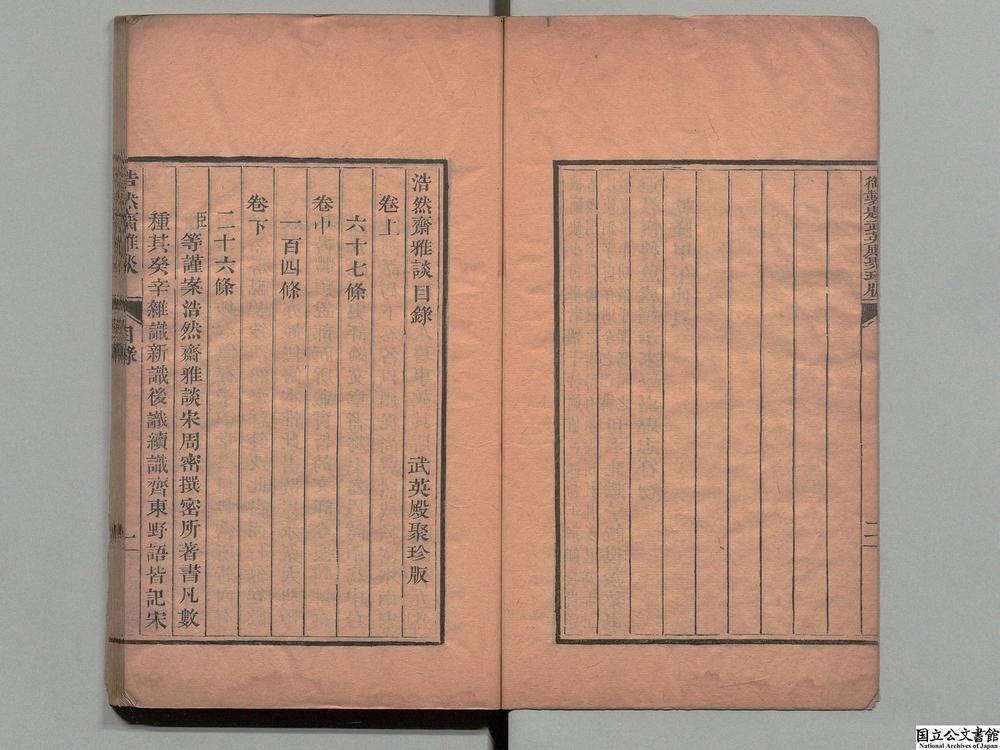 御製題武英殿聚珍版
二
浩然齋雅談目錄
武英殿聚珍版
卷上
六十七條
卷中
一百四條
卷下
二十六條
臣等謹案浩然齋雅談宋周密撰密所著書凡數
種其癸辛雜識新識後識續識齊東野語皆記宋
浩然齋雅談
目錄
一
国立公文書館
National Archives of Japan